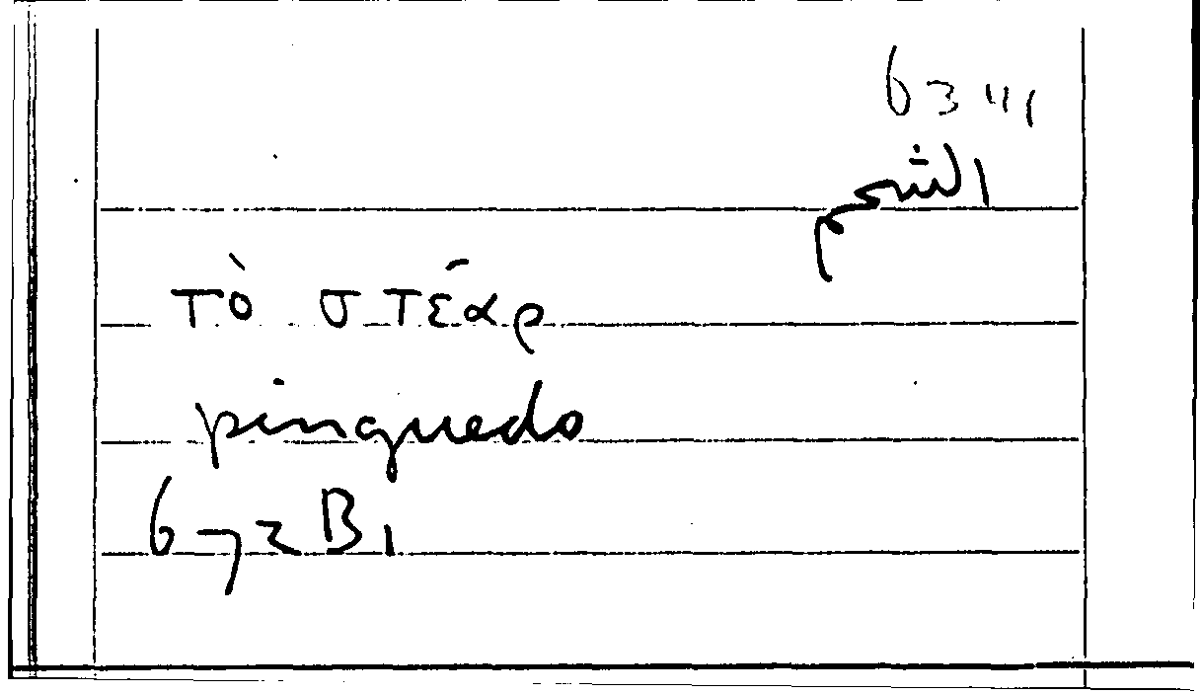 63411
الشحم
τὸ στέαρ
pinguedo
672 B1